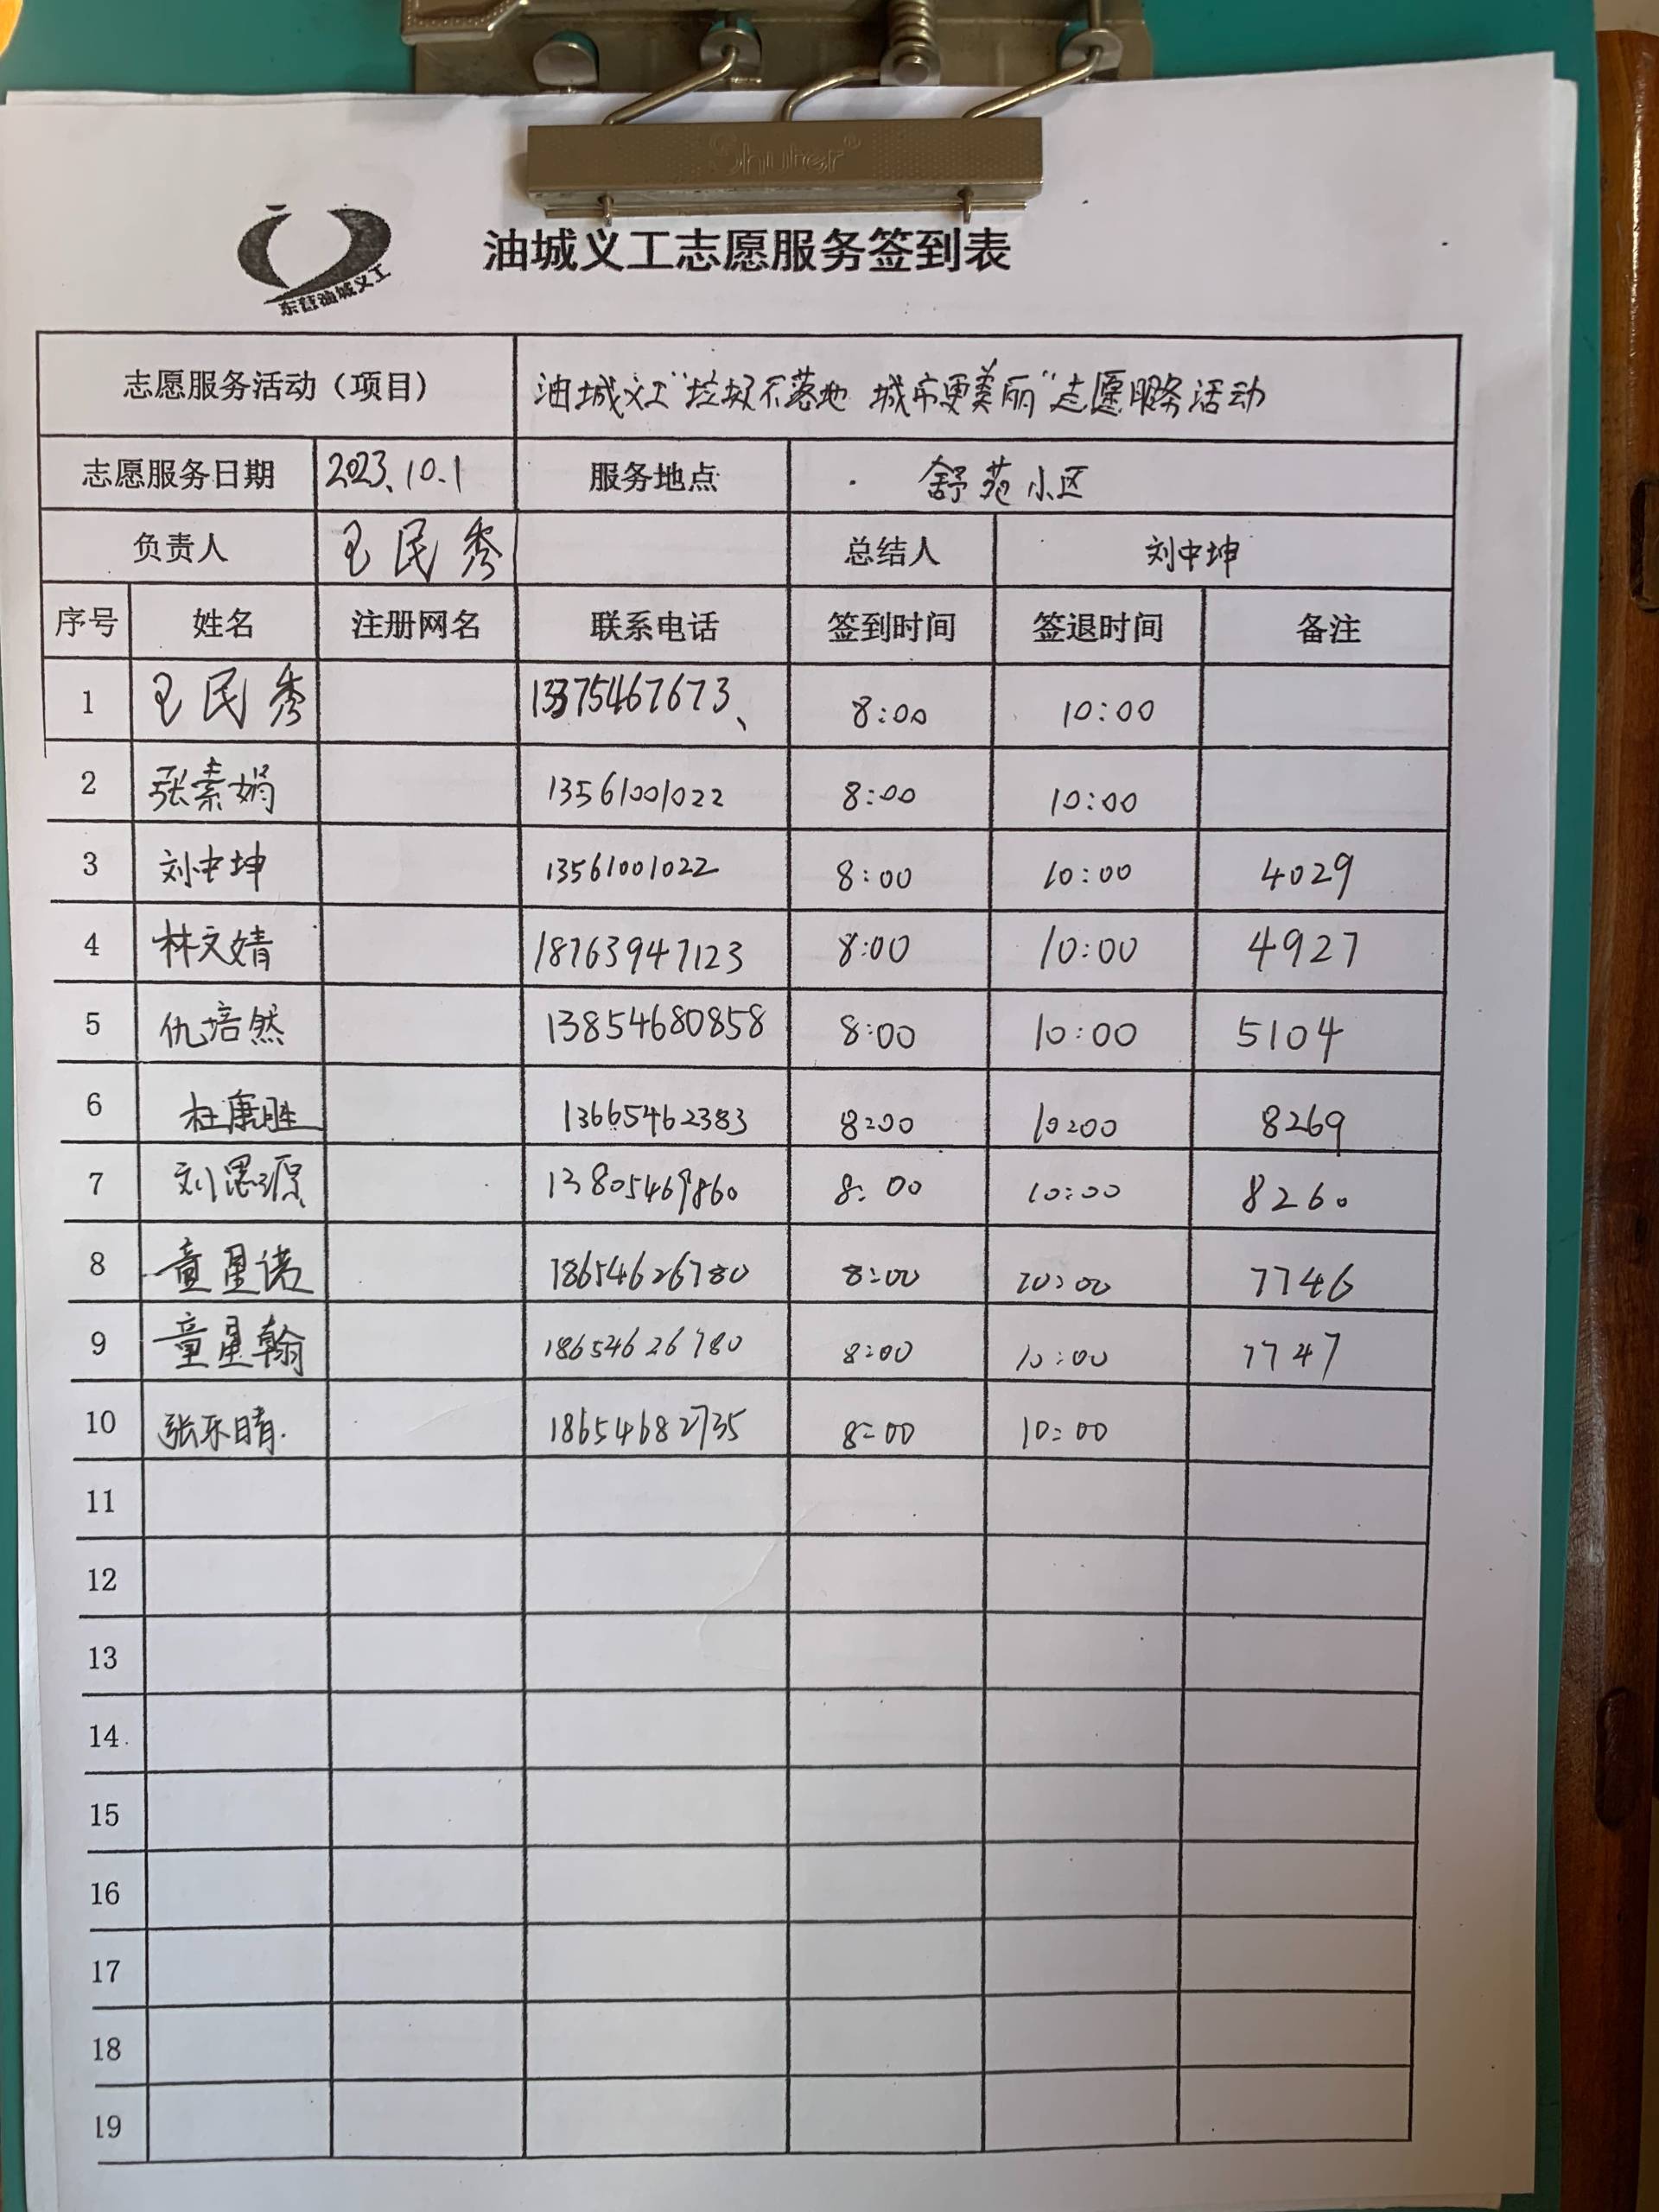 Shuter®
东营油城义工
油城义工志愿服务签到表
志愿服务活动（项目） 油城义工"垃圾不落地 城市更美丽"志愿服务活动
志愿服务日期 2023.10.1 服务地点 舒苑小区
负责人 王民秀 总结人 刘中坤
序号 姓名 注册网名 联系电话 签到时间 签退时间 备注
1 王民秀 13375467673、 8:00 10:00
2 张素娟 13561001022 8:00 10:00
3 刘中坤 13561001022 8:00 10:00 4029
4 林文婧 18763947123 8:00 10:00 4927
5 仇培然 13854680858 8:00 10:00 5104
6 杜康胜 13665462383 8:00 10:00 8269
7 刘思源 13805469860 8:00 10:00 8260
8 童星诺 18654626780 8:00 10:00 7746
9 童星翰 18654626780 8:00 10:00 7747
10 张乐晴. 18654682735 8:00 10:00
11
12
13
14
15
16
17
18
19